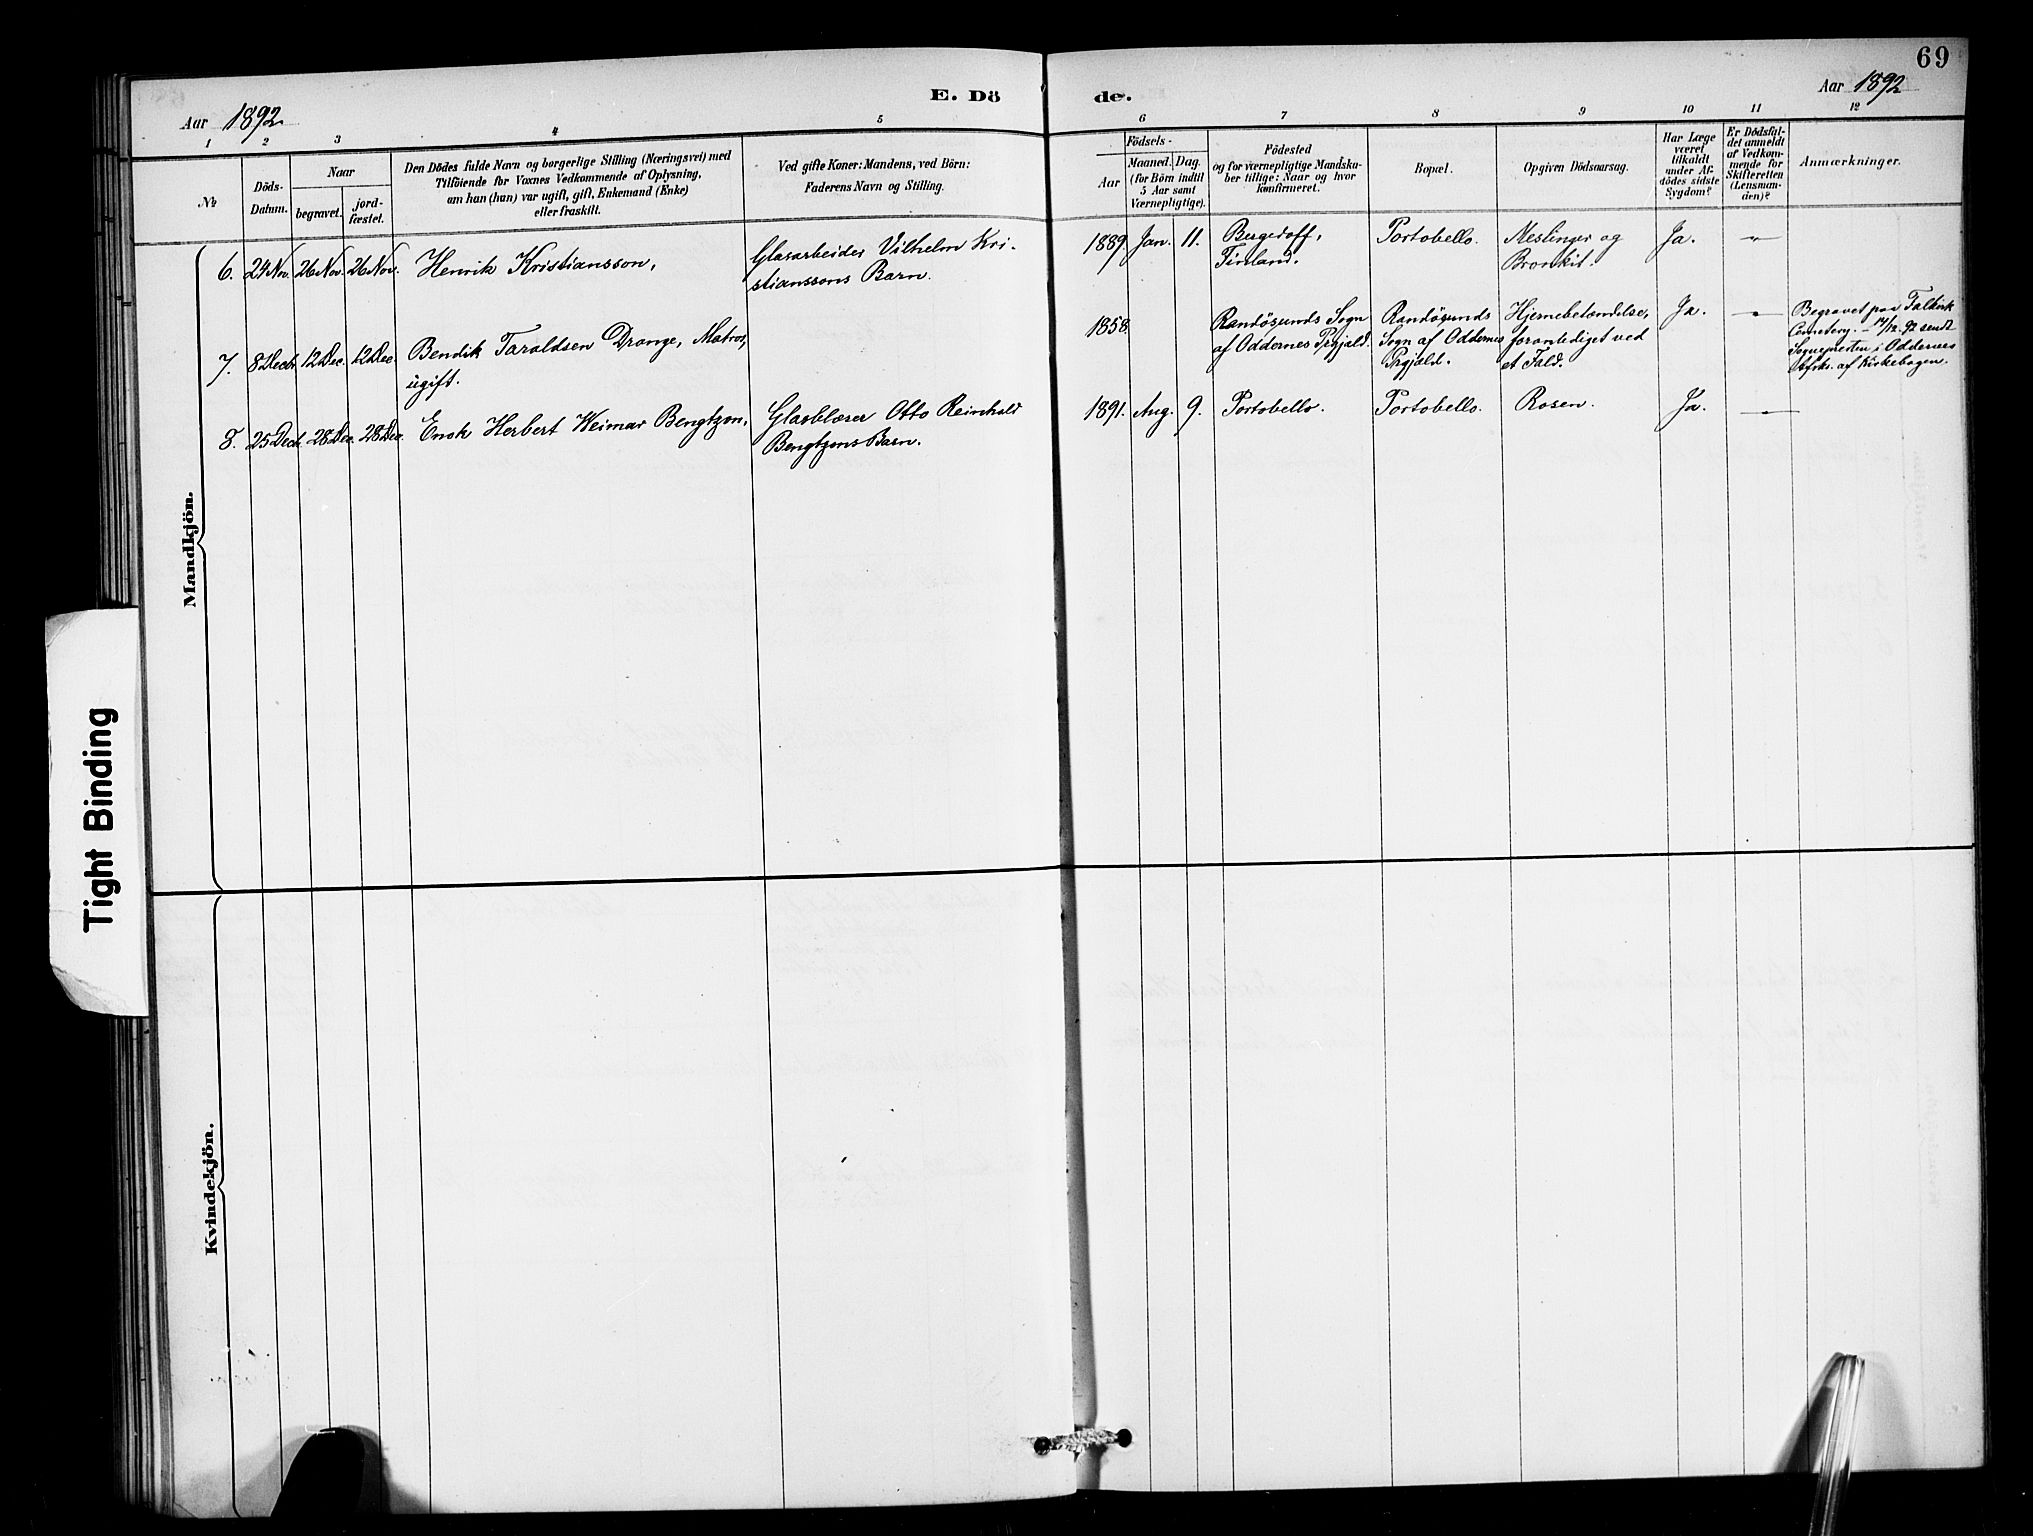 69
E. Döde.
Aar 1892.
Aar 1892
1 2 3 4 5 6 7 8 9 10 11 12
№
Döds-
Datum.
Naar
begravet.
jord-
fæstet.
Den Dödes fulde Navn og borgerlige Stilling (Næringsvei) med
Tilföiende for Voxnes Vedkommende af Oplysning,
om han (hun) var ugift, gift, Enkemand (Enke)
eller fraskilt.
Ved gifte Koner: Mandens, ved Börn:
Faderens Navn og Stilling.
Födsels-
Aar
Maaned. Dag.
(for Börn indtil
5 Aar samt
Værnepligtige).
Födested
og for værnepligtige Mandska-
ber tillige: Naar og hvor
konfirmeret.
Bopæl.
Opgiven Dödsaarsag.
Har Læge
været
tilkaldt
under Af-
dödes sidste
Sygdom?
Er Dödsfal-
det anmeldt
af Vedkom-
mende for
Skifteretten
(Lensman-
den)?
Anmærkninger.
Mandkjön.
6. 24 Nov. 26 Nov. 26 Nov. Henrik Kristiansson, Glasarbeider Vilhelm Kri-
stianssons Barn.
1889. Jan. 11. Bergedoff, Portobello. Meslinger og Ja. —"—
Finland. Bronkit.
7. 8 Dec. 12 Dec. 12 Dec. Bendik Taraldsen Drange, Matros,
ugift.
1858. Randösunds Sogn Randösunds Hjernebetændelse, Ja. —"— Begravet paa Falkirk
af Oddernes Prgjæld. Sogn af Oddernes foranlediget ved Cemetery. — 92 sendt
Prgjæld. et Fald. Sognepresten i Oddernes
af Kirkebogen.
8. 25 Dec. 28 Dec. 28 Dec. Enok Herbert Weimar Bengtzon, Glasblæser Otto Reinhold
Bengtzons Barn.
1891. Aug. 9. Portobello. Portobello. Rosen. Ja. —"—
Kvindekjön.
Tight Binding